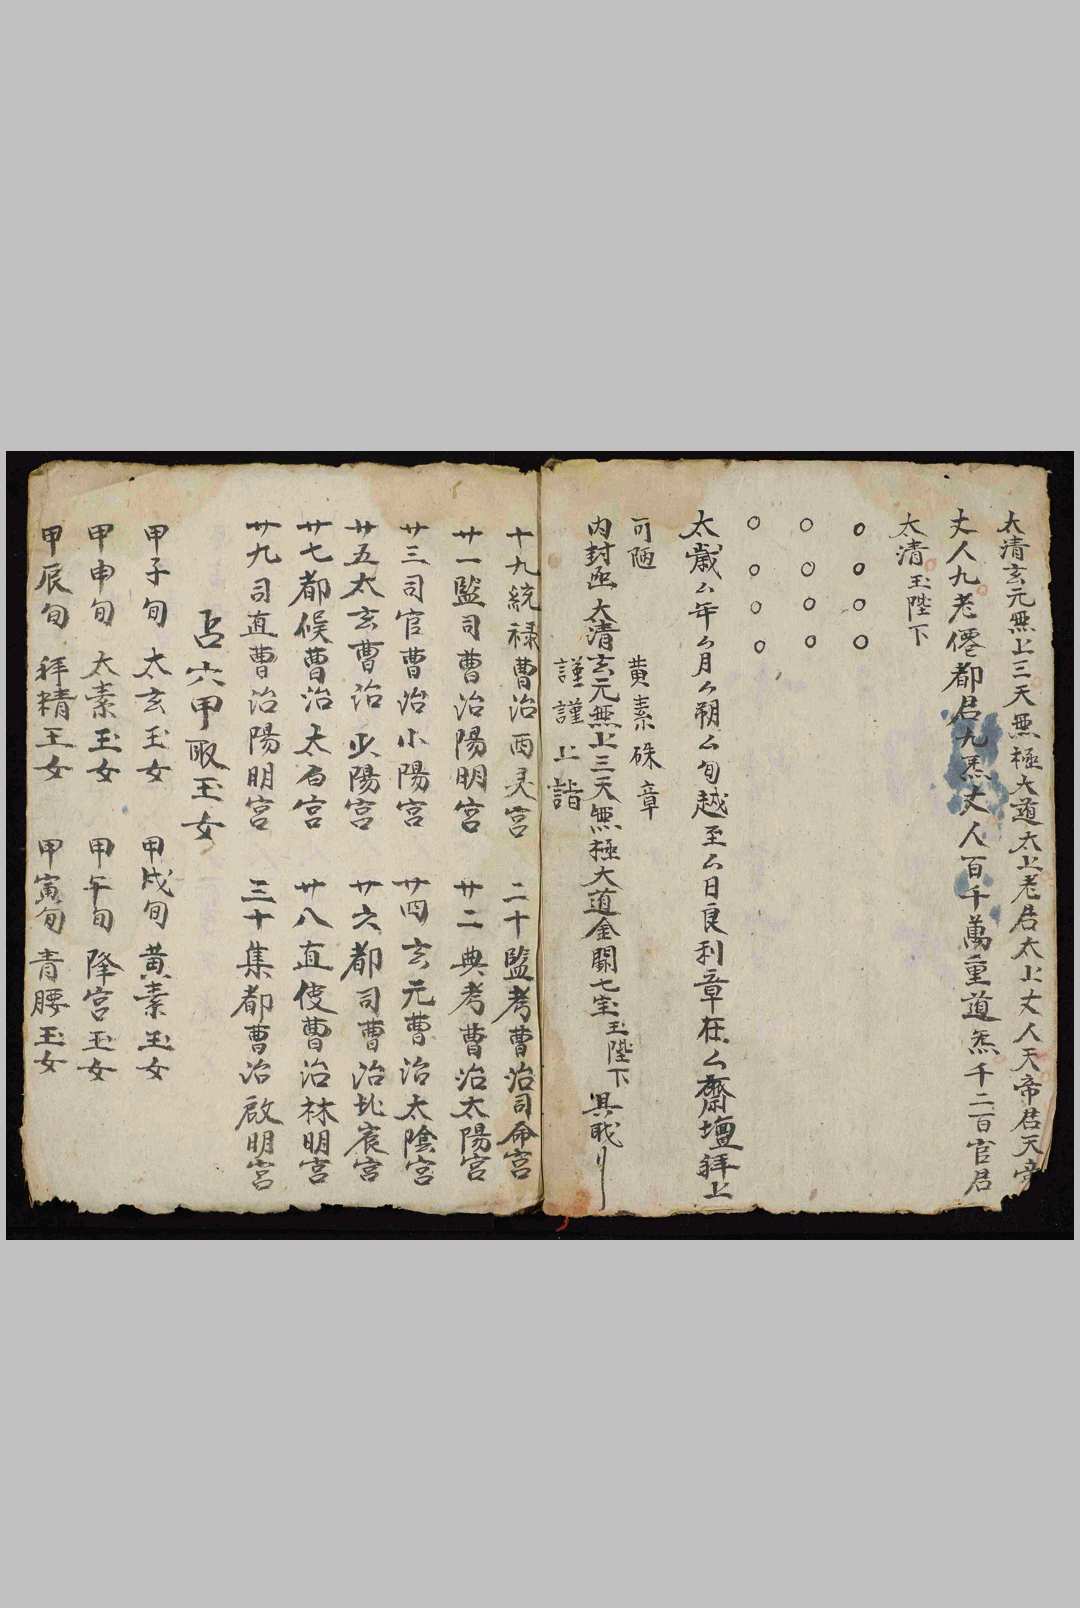 太清玄元無上三天無極大道太上老君太上丈人天帝君天帝
丈人九老僊都君九炁丈人百千萬重道炁千二百官君
太清玉陛下
○○○○
○○○○
○○○○
太歲厶年厶月厶朔厶旬越至厶日良利章在厶齋壇拜上
可陋 黃素硃章
内封函 太清玄元無上三天無極大道金闕七宝玉陛下
謹謹上詣
十九統禄曹治酉灵宮 二十監考曹治司命宮
廿一監司曹治陽明宮 廿二典考曹治太陽宮
廿三司官曹治小陽宮 廿四玄元曹治太陰宮
廿五太玄曹治少陽宮 廿六都司曹治北宸宮
廿七都候曹治太白宮 廿八直使曹治林明宮
廿九司直曹治陽明宮 三十集都曹治啟明宮
吕六甲取玉女
甲子旬 太玄玉女 甲戌旬 黃素玉女
甲申旬 太素玉女 甲午旬 降宮玉女
甲辰旬 拜精玉女 甲寅旬 青腰玉女